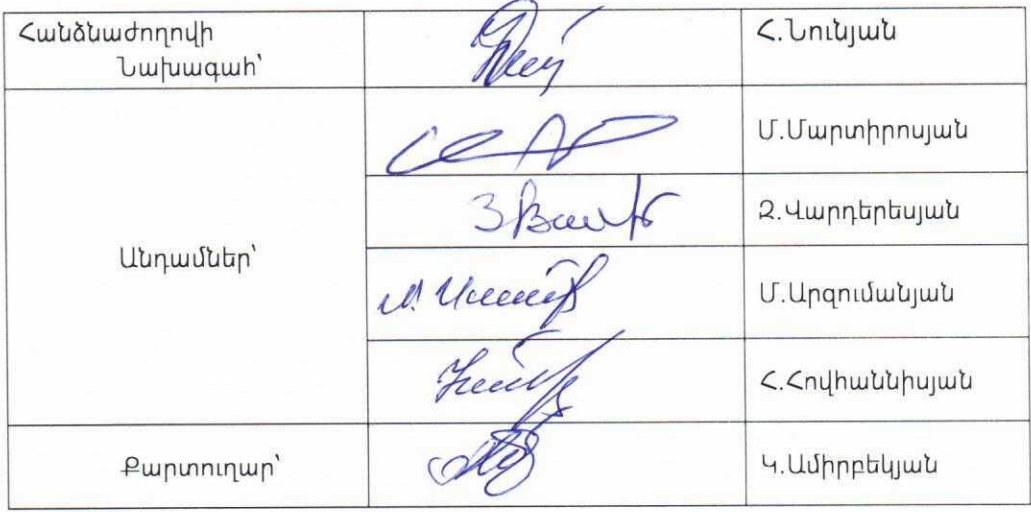 Հանձնաժողովի
Նախագահ՝
Հ.Նունյան
Մ.Մարտիրոսյան
Զ.Վարդերեսյան
Անդամներ՝
Մ.Արզումանյան
Հ.Հովհաննիսյան
Քարտուղար՝
Կ.Ամիրբեկյան